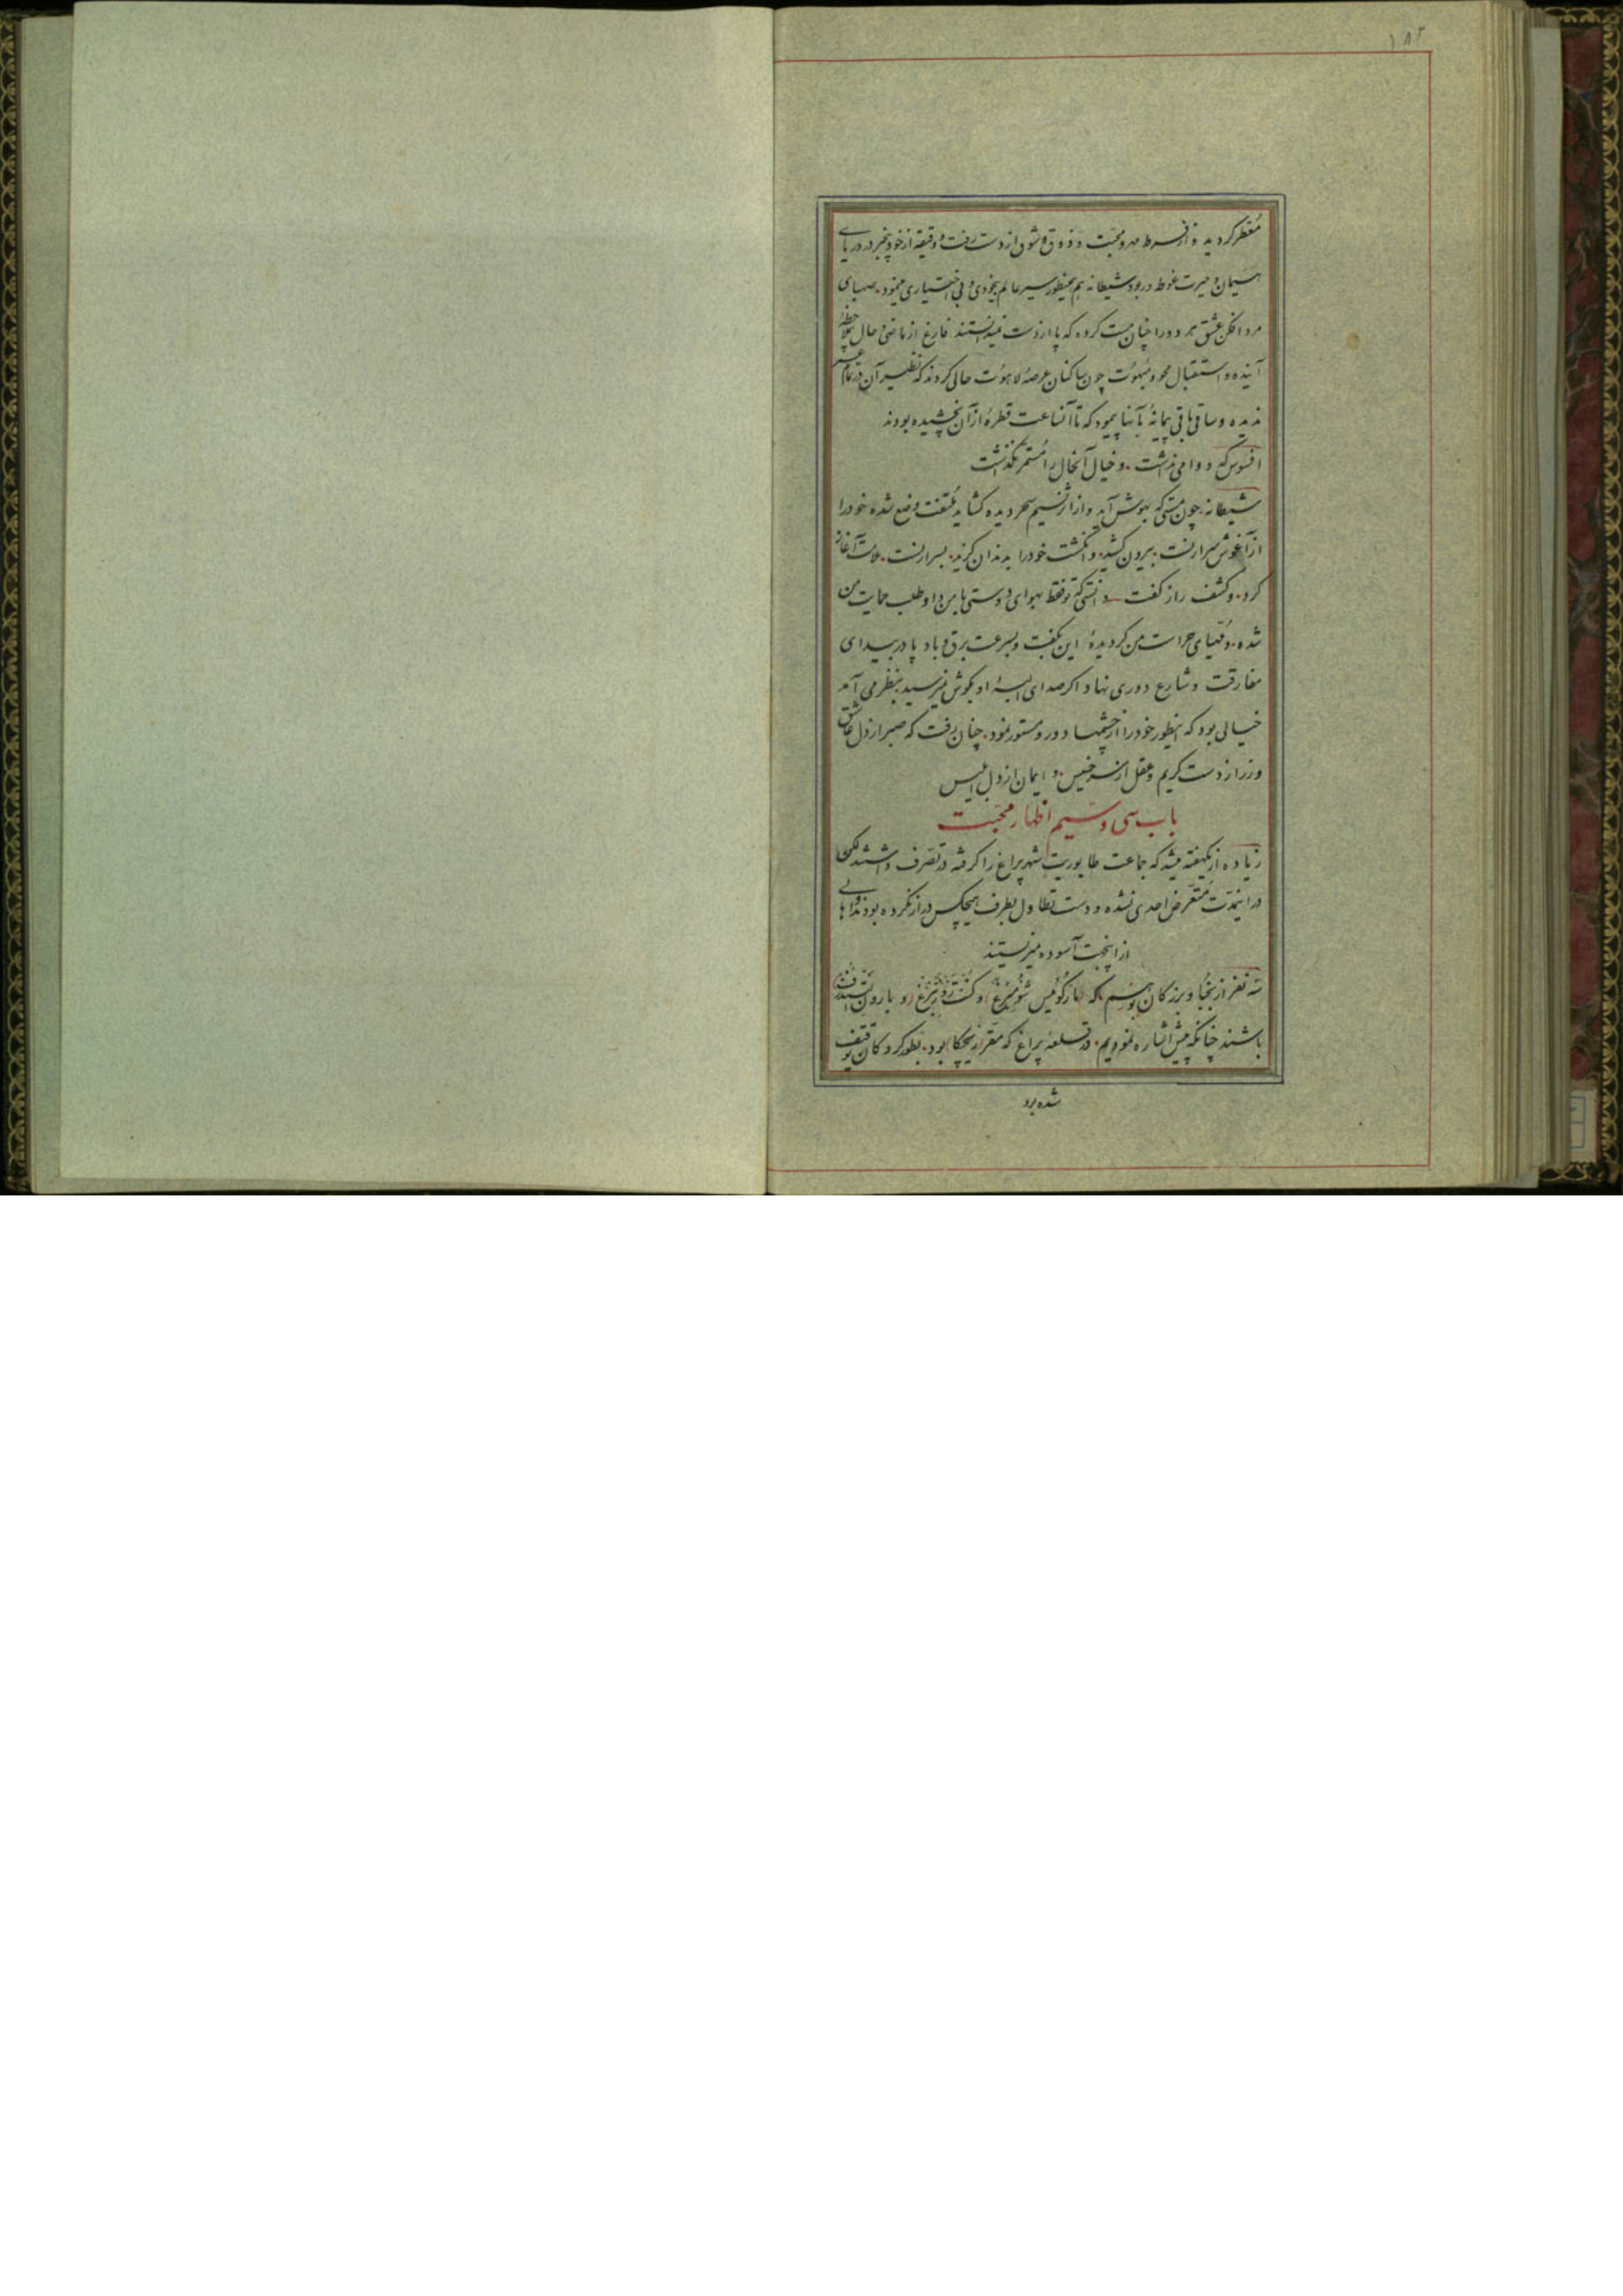 ۱۸۲
معطر کردید و از فرط مهر و محبت و ذوق و شوق از دست رفت و دقیقه از خود بیخبر در دریای
هیمان و حیرت غوطه‌ور بود شیطانه هم همینطور سیر عالم بیخودی و بی اختیاری مینمود. صهبای
مرد افکن عشق هر دو را چنان مست کرده که پا از دست نمیدانستند فارغ از ماضی و حال بملاحظهٔ
آینده و استقبال محو و مبهوت چون ساکنان عرصهٔ لاهوت حالی کردند که نظیر آن در تمام عمر
ندیده و ساقی باقی پیمانهٔ بآنها پیمود که تا آنساعت قطرهٔ از آن نچشیده بودند
افسوس که دوامی نداشت. و خیال آنحال را مستمر نگذاشت
شیطانه چون مستی که بهوش آید و از اثر نسیم سحر دیده کشاید ملتفت وضع شده خود را
از آغوش سرارنست. بیرون کشید. و انگشت خود را بدندان گزید. بسرارنست. ملامت آغاز
کرد. و کشف راز گفت دانستی که تو فقط بهوای دوستی با من داوطلب حمایت من
شده. و مهیای حراست من کردیدهٔ این بگفت و بسرعت برق و باد پا در بیدای
مفارقت و شارع دوری نهاد اکر صدای البسهٔ او بکوش نمیرسید بنظر می آمد
خیالی بود که اینطور خود را از چشمها دور و مستور نمود. چنان رفت که صبر از دل عاشق
و زر از دست کریم و عقل از سر خسیس. و ایمان از دل ابلیس
باب سی و سیم اظهار محبت
زیاده از یکهفته میشد که جماعت طابوریت شهر پراغ را کرفته در تصرف داشتند لکن
در اینمدت متعرض احدی نشده و دست تطاول بطرف هیچکس دراز نکرده بودند و اهالی
از اینجهت آسوده میزیستند
سه نفر از نجبا و بزرکان بوهیم که (مارکوئیس شومبرغ) و کنت رزنبرغ (و بارون
باشند چنانکه پیش اشاره نمودیم. در قلعهٔ پراغ که مقر از یچکا) بود. بطور کروکان توقیف
شده بود